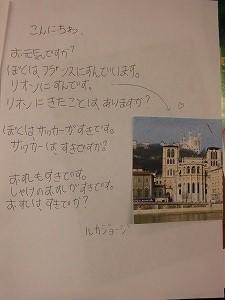 こんにちわ。
お元気ですか?
ぼくは、フランスにすんでいます。
リオンにすんでいます。
リオンにきたことは、ありますか?
ぼくはサッカーがすきです。
サッカーは、すきですか?
おすしもすきです。
しゃけのおすしがすきです。
おすしは、すきですか?
ルカジョージ